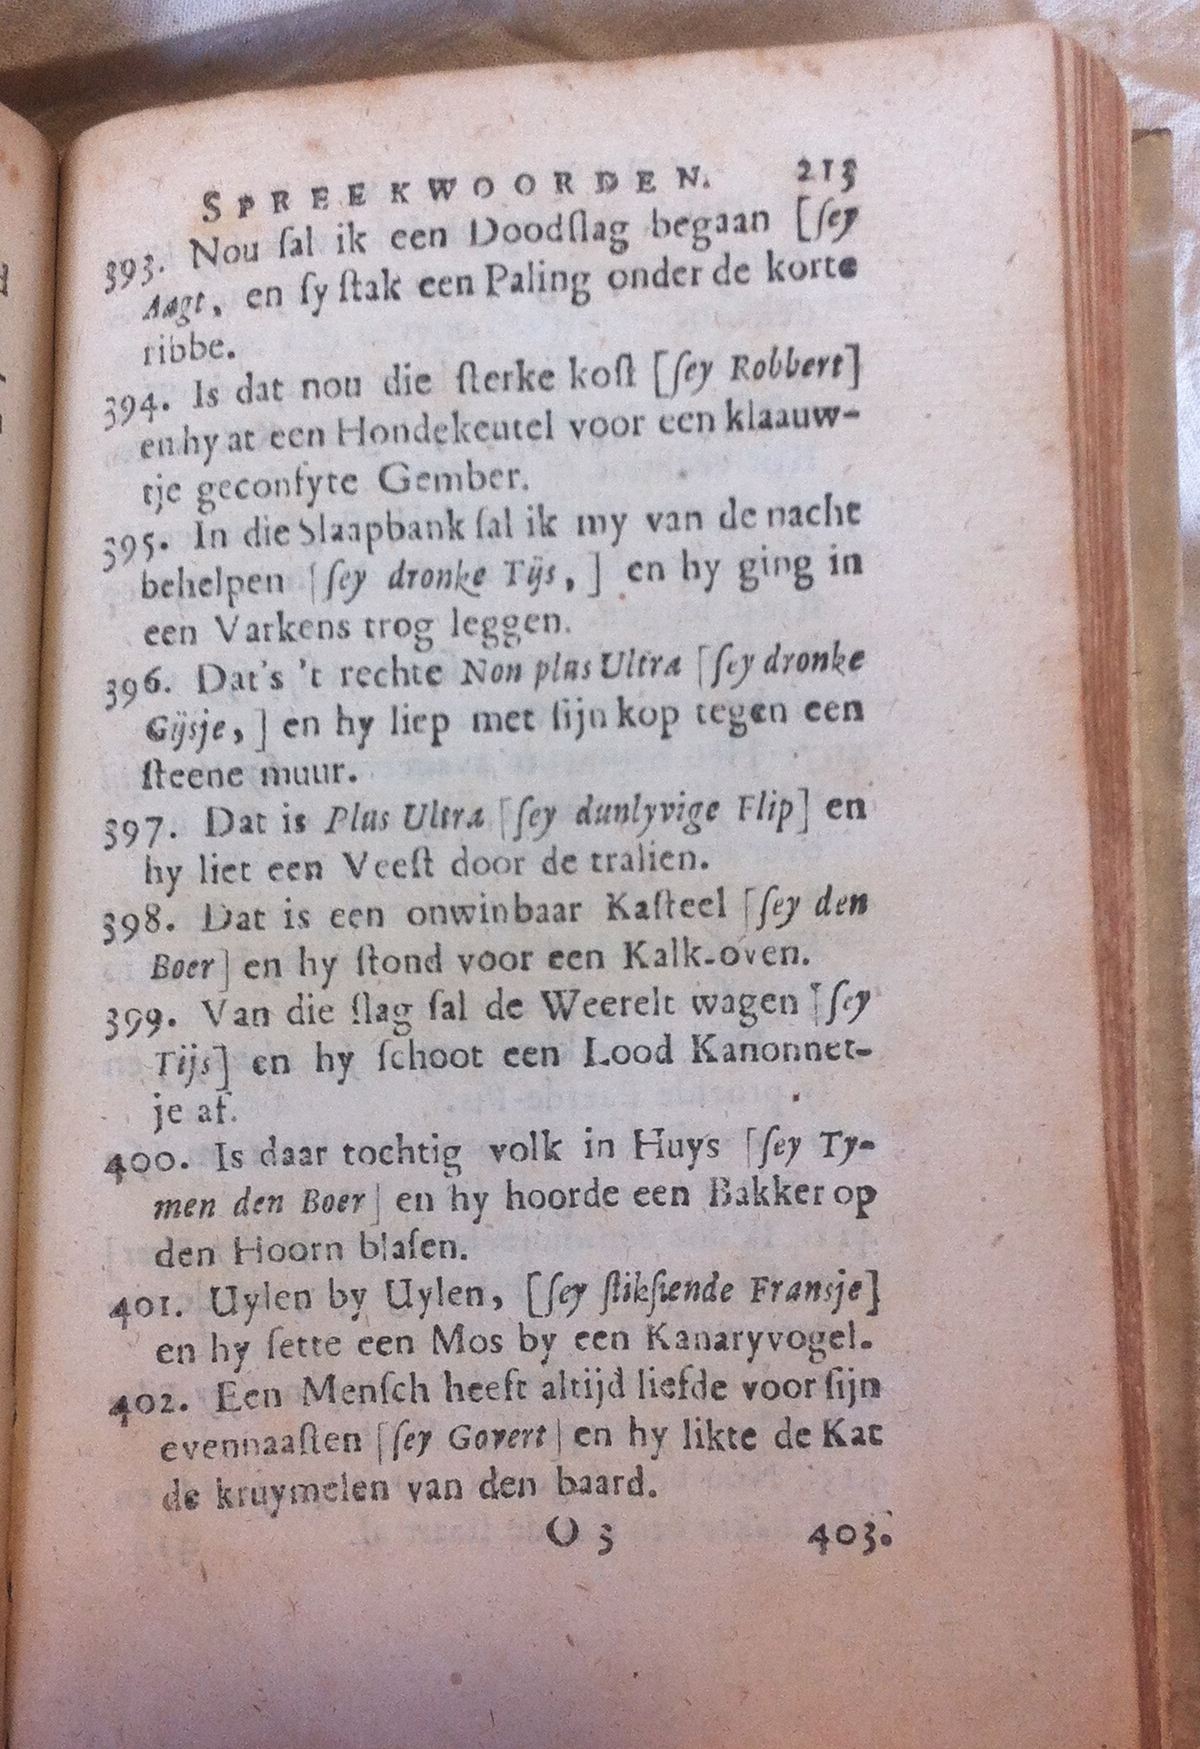 SPREEKWOORDEN. 213
393. Nou ſal ik een Doodſlag begaan [ſey
Aagt, en ſy ſtak een Paling onder de korte
ribbe.
394. Is dat nou die ſterke koſt [ſey Robbert]
en hy at een Hondekeutel voor een klaauw-
tje geconfyte Gember.
395. In die Slaapbank ſal ik my van de nacht
behelpen [ſey dronke Tijs,] en hy ging in
een Varkens trog leggen.
396. Dat's 't rechte Non plus Ultra [ſey dronke
Gijsje,] en hy liep met ſijn kop tegen een
ſteene muur.
397. Dat is Plus Ultra [ſey dunlyvige Flip] en
hy liet een Veeſt door de tralien.
398. Dat is een onwinbaar Kaſteel [ſey den
Boer] en hy ſtond voor een Kalk-oven.
399. Van die ſlag ſal de Weerelt wagen [ſey
Tijs] en hy ſchoot een Lood Kanonnet-
je af.
400. Is daar tochtig volk in Huys [ſey Ty-
men den Boer] en hy hoorde een Bakker op
den Hoorn blaſen.
401. Uylen by Uylen, [ſey ſtikſiende Fransje]
en hy ſette een Mos by een Kanaryvogel.
402. Een Menſch heeft altijd liefde voor ſijn
evennaaſten [ſey Govert] en hy likte de Kat
de kruymelen van den baard.
O 3 403.